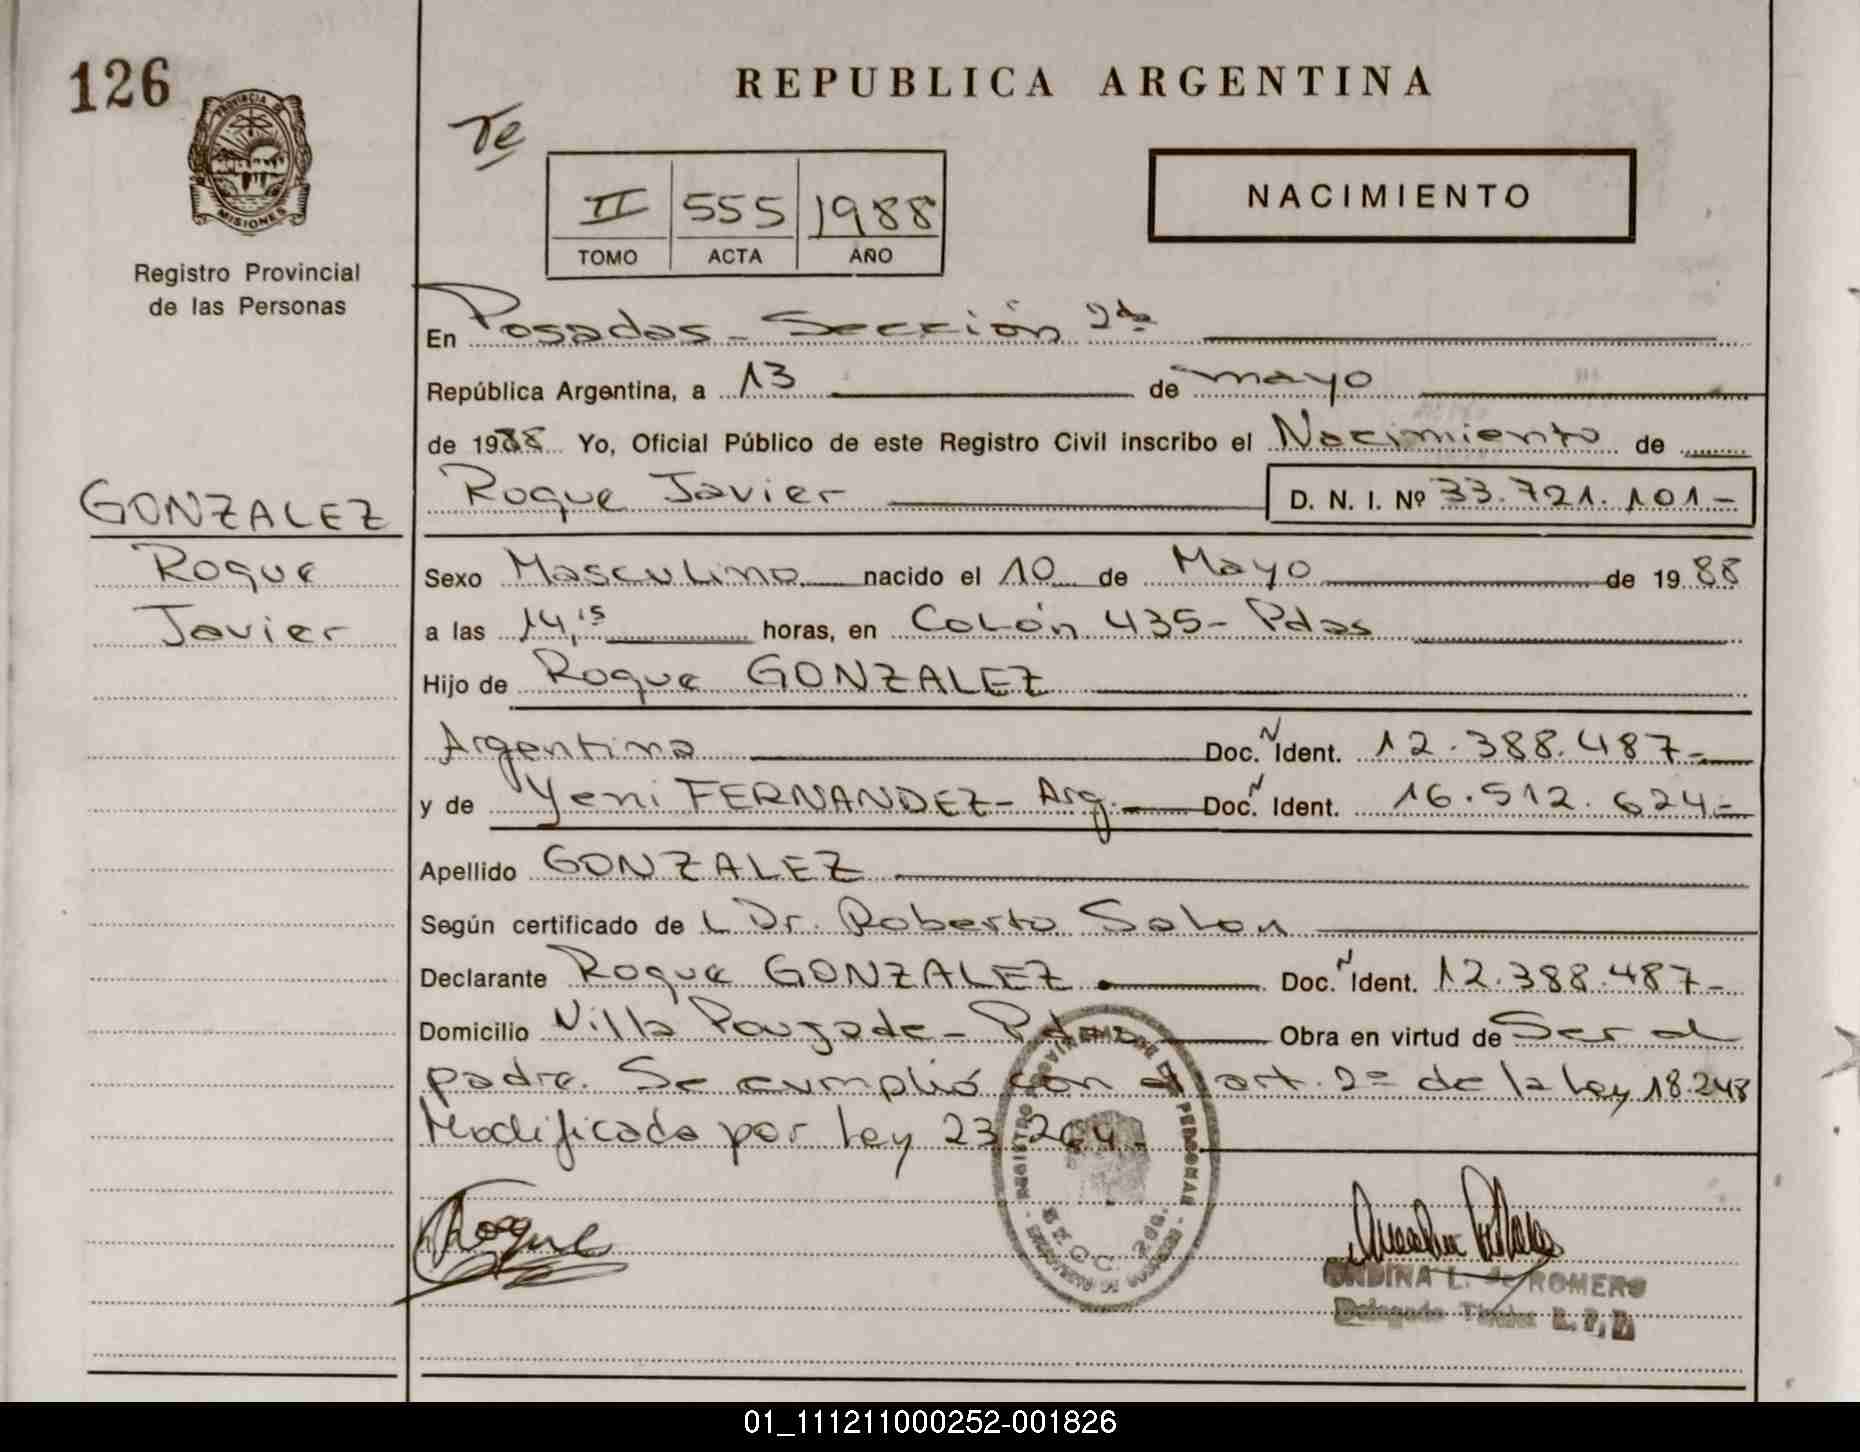 126
REPUBLICA ARGENTINA
PROVINCIA DE
MISIONES
Te
II 555 1988
TOMO ACTA AÑO
NACIMIENTO
Registro Provincial
de las Personas
En Posadas - Sección 2da
República Argentina, a 13 de mayo
de 1988 Yo, Oficial Público de este Registro Civil inscribo el Nacimiento de
Roque Javier D. N. I. Nº 33.721.101-
GONZALEZ
Roque
Javier
Sexo Masculino nacido el 10 de Mayo de 19 88
a las 14,15 horas, en Colón 435 - Pdas
Hijo de Roque GONZALEZ
Argentina Doc. N Ident. 12.388.487-
y de Yeni FERNANDEZ - Arg. Doc. N Ident. 16.512.624-
Apellido GONZALEZ
Según certificado de L Dr. Roberto Solon
Declarante Roque GONZALEZ Doc. N Ident. 12.388.487-
Domicilio Villa Poujade - Pdas Obra en virtud de Ser el
padre. Se cumplió con el art. 2º de la Ley 18.248
Modificada por Ley 23.264.-
REGISTRO PROVINCIAL DE LAS PERSONAS
SECC. 2da.
Roque
ONDINA L. de ROMERO
Delegado Titular R. P. P.
01_111211000252-001826